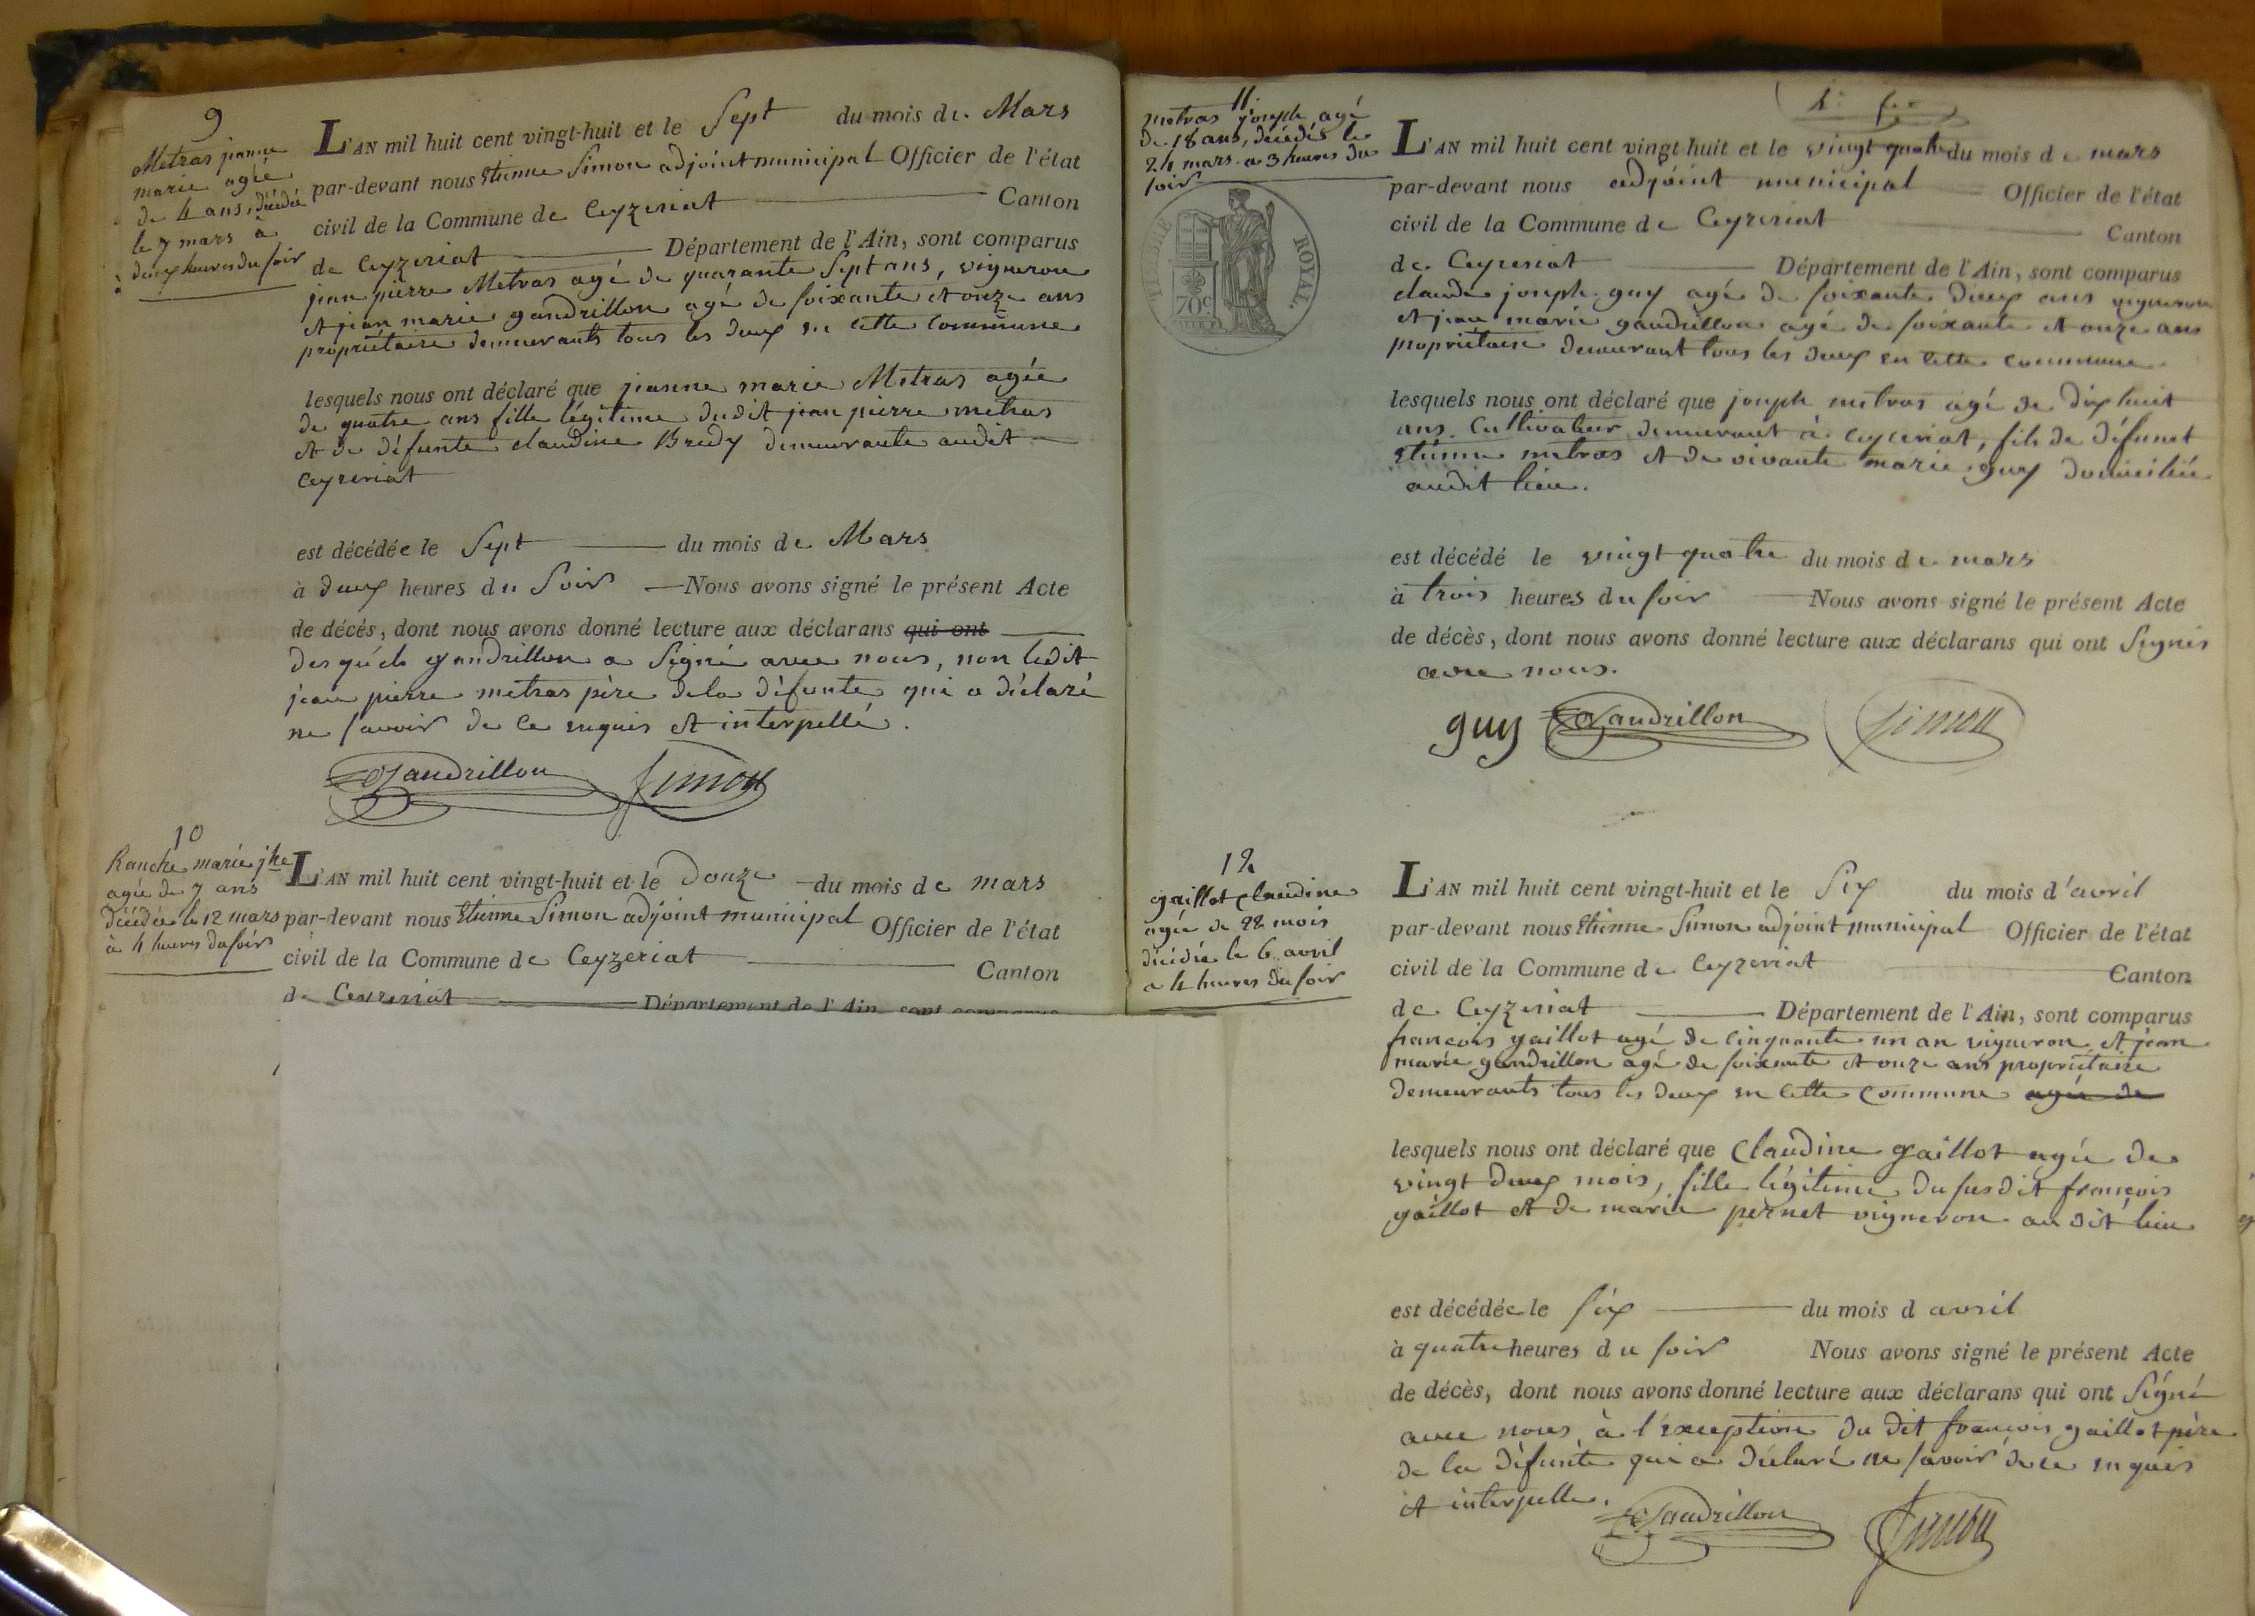 9
Metras jeanne
marie agée
de 4 ans, décédée
le 7 mars à
deux heures du soir
L'AN mil huit cent vingt-huit et le Sept du mois de Mars
par-devant nous Etienne Simon adjoint municipal Officier de l'état
civil de la Commune de Ceyzeriat Canton
de Ceyzeriat Département de l'Ain, sont comparus
jean pierre Metras agé de quarante Sept ans, vigneron
et jean marie gandrillon agé de soixante et onze ans
propriétaire demeurants tous les deux en cette commune
lesquels nous ont déclaré que jeanne marie Metras agée
de quatre ans fille légitime dudit jean pierre metras
et de défunte claudine Bredy demeurante audit
Ceyzeriat
est décédée le Sept du mois de Mars
à deux heures du Soir Nous avons signé le présent Acte
de décés, dont nous avons donné lecture aux déclarans qui ont
desquels gandrillon a Signé avec nous, non ledit
jean pierre metras père de la défunte qui a déclaré
ne savoir de ce enquis et interpellé.
Gandrillon Simon
10
Ranche marie jhe
agée de 7 ans
décédée le 12 mars
à 4 heures du soir
L'AN mil huit cent vingt-huit et le Douze du mois de mars
par-devant nous Etienne Simon adjoint municipal Officier de l'état
civil de la Commune de Ceyzeriat Canton
de Ceyzeriat Département de l'Ain, sont comparus
11
metras joseph agé
de 18 ans, décédé le
24 mars a 3 heures du
soir
TIMBRE ROYAL.
70c
L'AN mil huit cent vingt-huit et le vingt quatre du mois de mars
par-devant nous adjoint municipal Officier de l'état
civil de la Commune de Ceyzeriat Canton
de Ceyzeriat Département de l'Ain, sont comparus
claude joseph guy agé de soixante deux ans vigneron
et jean marie gaudrillon agé de soixante et onze ans
propriétaire demeurant tous les deux en cette commune
lesquels nous ont déclaré que joseph metras agé de dix huit
ans Cultivateur demeurant à Ceyzeriat, fils de défunt
etienne metras et de vivante marie guy domiciliée
audit lieu.
est décédé le vingt quatre du mois de mars
à trois heures du soir Nous avons signé le présent Acte
de décès, dont nous avons donné lecture aux déclarans qui ont Signés
avec nous.
guy Gandrillon Simon
12
gaillot Claudine
agée de 22 mois
décédée le 6 avril
a 4 heures du soir
L'AN mil huit cent vingt-huit et le Six du mois d'avril
par-devant nous Etienne Simon adjoint municipal Officier de l'état
civil de la Commune de Ceyzeriat Canton
de Ceyzeriat Département de l'Ain, sont comparus
francois gaillot agé de cinquante un an vigneron et jean
marie gandrillon agé de soixante et onze ans propriétaire
demeurants tous les deux en cette commune agée de
lesquels nous ont déclaré que Claudine gaillot agée de
vingt deux mois, fille légitime du susdit francois
gaillot et de marie pernet vigneron au dit lieu
est décédée le six du mois d avril
à quatre heures du soir Nous avons signé le présent Acte
de décès, dont nous avons donné lecture aux déclarans qui ont Signé
avec nous à l'exception du dit francois gaillot père
de la défunte qui a déclaré ne savoir de ce enquis
et interpellé.
Gandrillon Simon